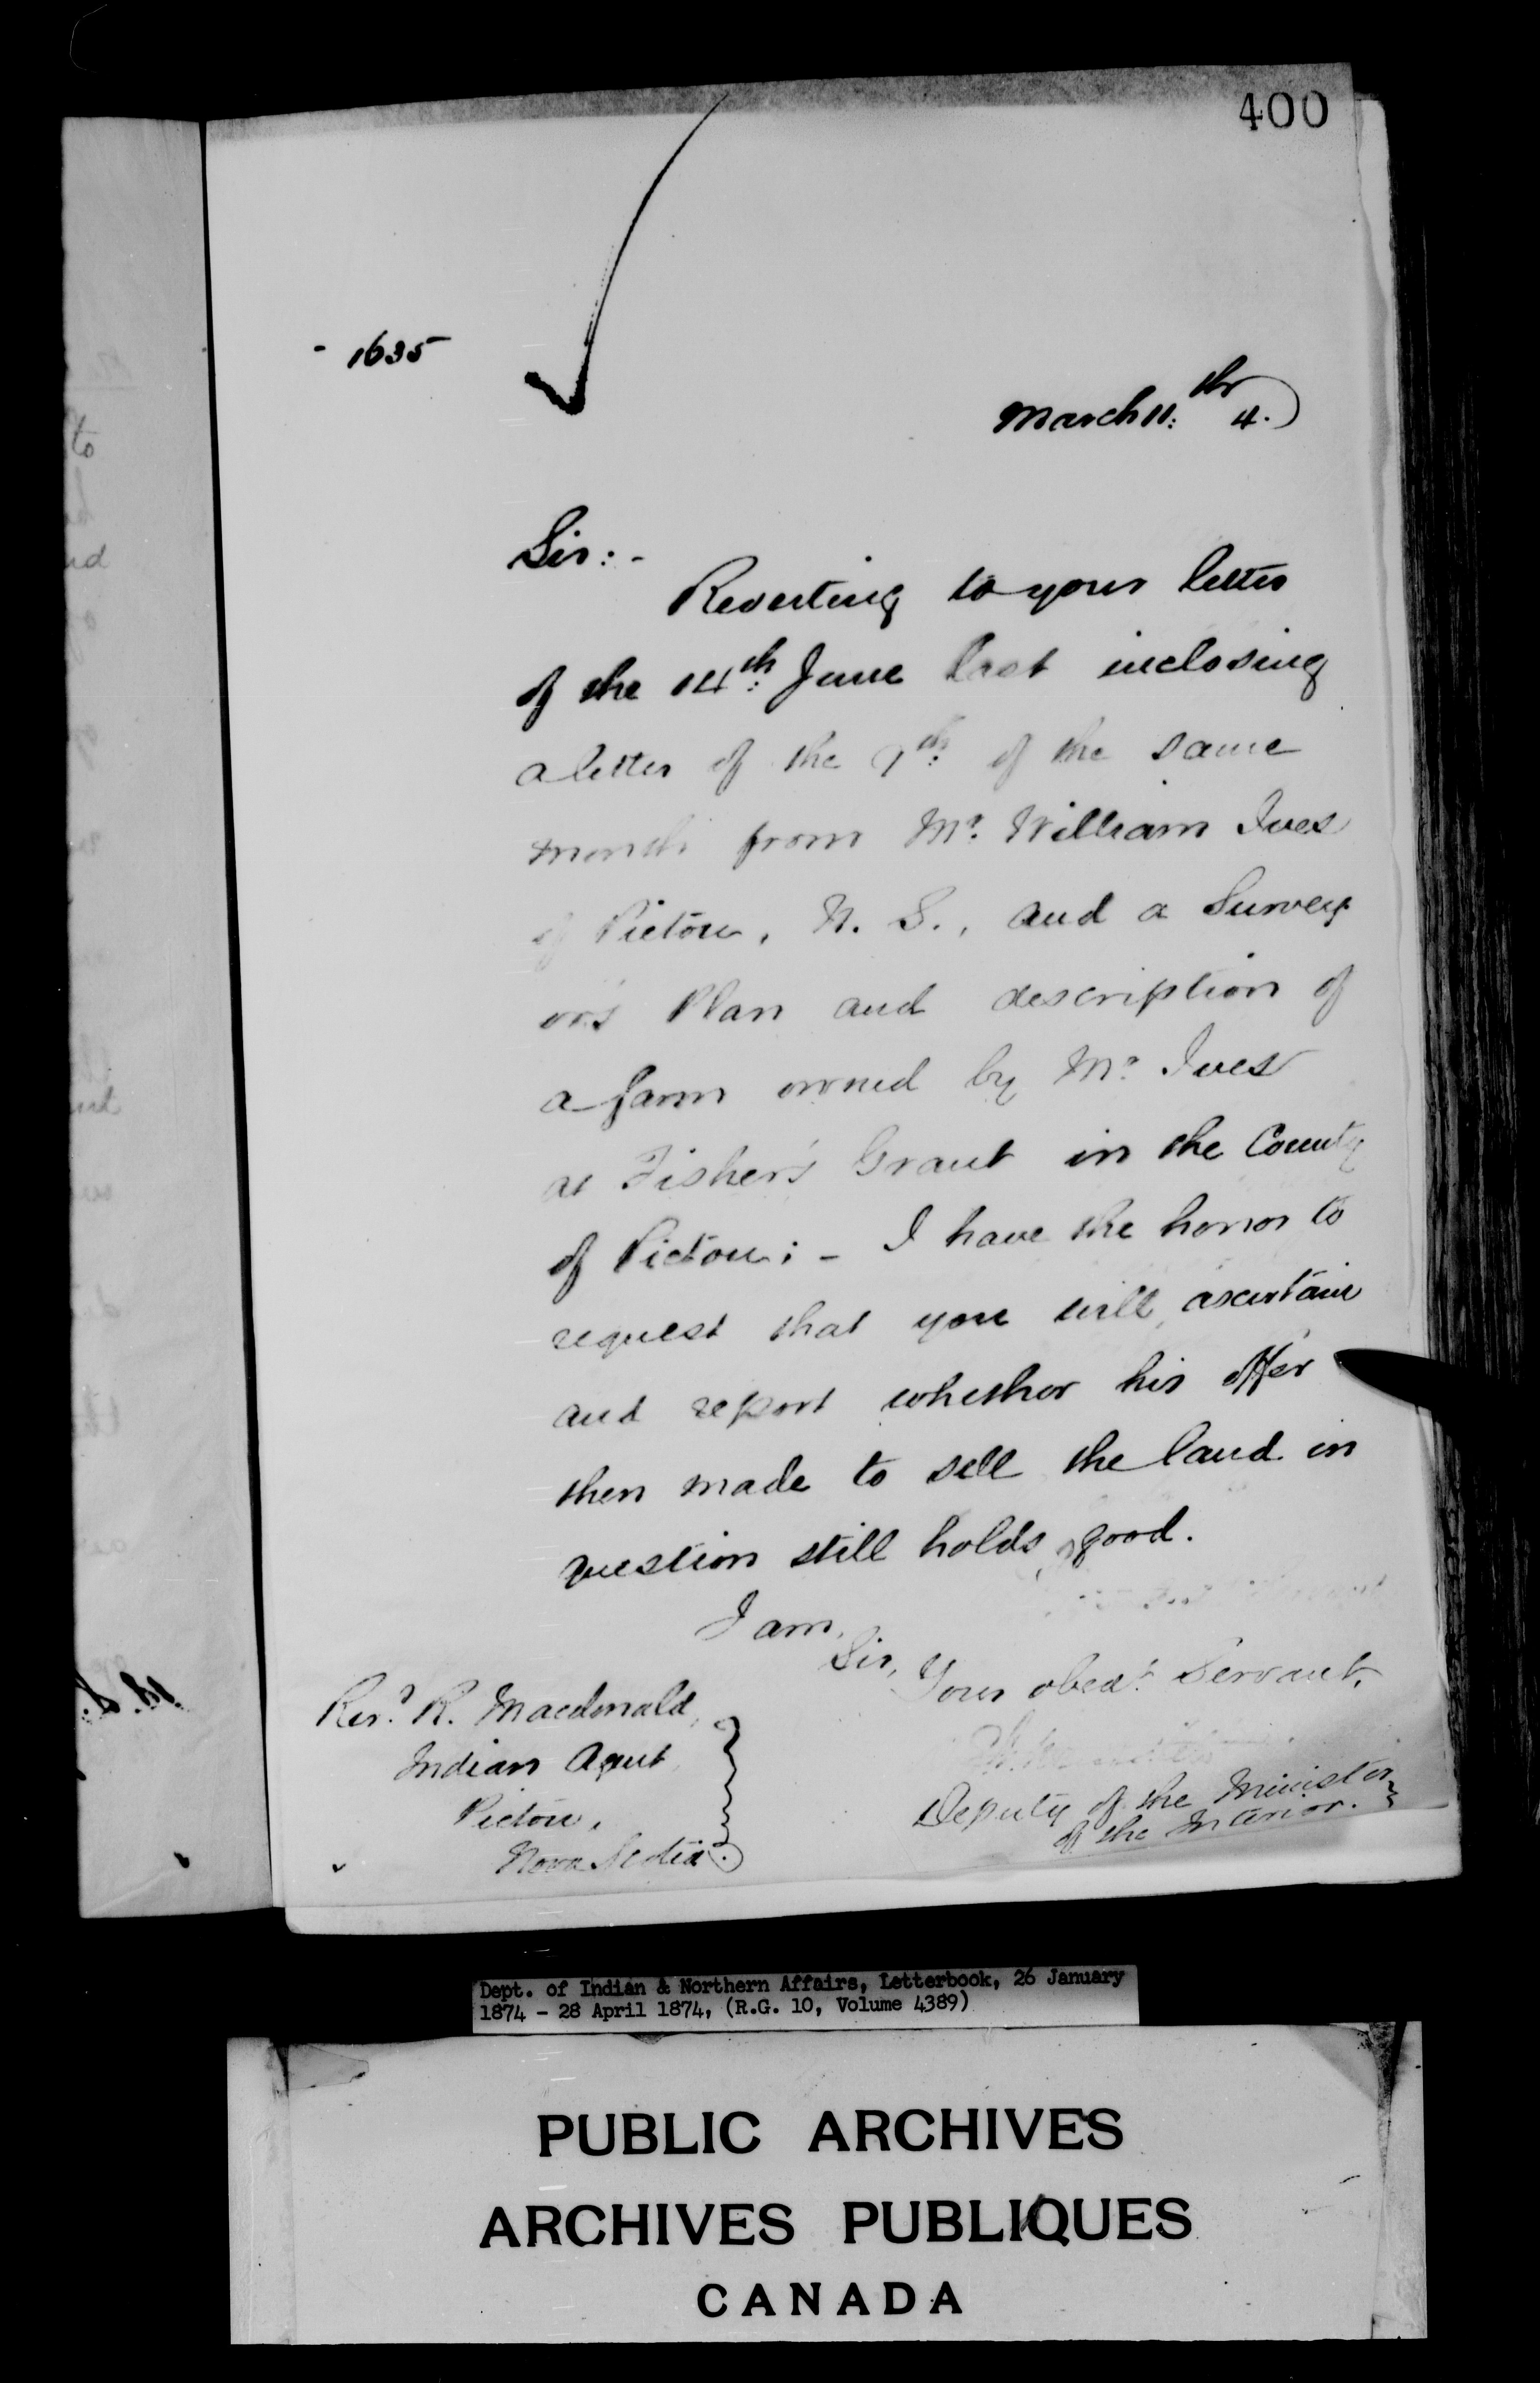 400
- 1635
March 11:th 4.
Sir:-
Reverting to your letter
of the 14th: June last inclosing
a letter of the 9th: of the same
month from Mr. William Ives
of Pictou, N. S., and a Survey-
or's Plan and description of
a farm owned by Mr. Ives
at Fisher's Grant in the County
of Pictou; - I have the honor to
request that you will, ascertain
and report whether his offer
then made to sell the land in
question still holds good.
I am,
Sir,
Your obedt. Servant,
Revd. R. Macdonald,
Indian Agent,
Pictou,
Nova Scotia.
Deputy of the Minister
of the Interior.
Dept. of Indian & Northern Affairs, Letterbook, 26 January
1874 - 28 April 1874, (R.G. 10, Volume 4389)
PUBLIC ARCHIVES
ARCHIVES PUBLIQUES
CANADA